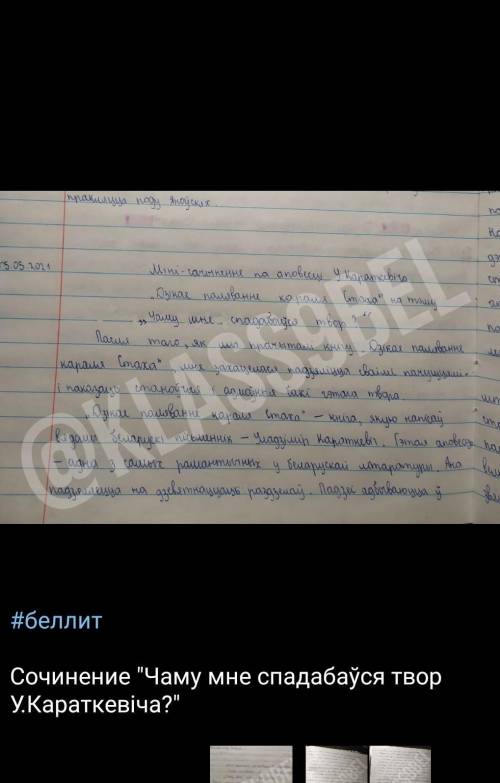 пракляцця роду Яноўскіх.
03.2021
Міні-сачыненне па аповесці У.Караткевіча
"Дзікае паляванне караля Стаха" на тэму
"Чаму мне спадабаўся твор?"
Пасля таго, як мы прачыталі кнігу "Дзікае паляванне
караля Стаха", мне захацелася падзяліцца сваімі пачуццямі
і паказаць станоўчыя і бакі гэтага твора.
"Дзікае паляванне караля Стаха" – кніга, якую напісаў
вядомы беларускі пісьменнік – Уладзімір Караткевіч. Гэтая аповесць
– адна з самых рамантычных у беларускай літаратуры. Яна
падзяляецца на дзевятнаццаць раздзелаў. Падзеі адбываюцца ў
@KLASS9BEL
#беллит
Сочинение "Чаму мне спадабаўся твор
У.Караткевіча?"